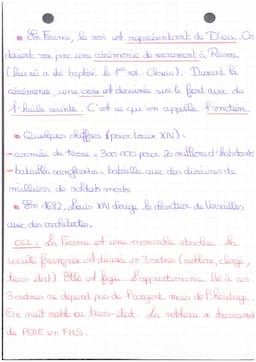 • En France, le roi est représentant de Dieu. Ce
devant par une cérémonie de sacrement à Reims
(lieu où a été baptisé le 1er roi : Clovis). Durant la
cérémonie, une croix est dessinée sur le front avec de
l'huile sainte. C'est ce qu'on appelle l'onction.
• Quelques chiffres (pour Louis XIV) :
- armée de terre = 300 000 pour 20 millions d'habitants
- batailles : bataille avec des dizaines de
milliers de soldats morts
• En 1682, Louis XIV dirige la de Versailles
avec des architectes.
CCL : La France est une monarchie absolue. La
société française est divisée en 3 ordres (noblesse, clergé,
tiers-état). Elle est figée. L'appartenance à ses
3 ordres ne dépend pas de l'argent mais de l'héritage.
On naît noble ou tiers-état. La noblesse se transmet
de PÈRE en FILS.